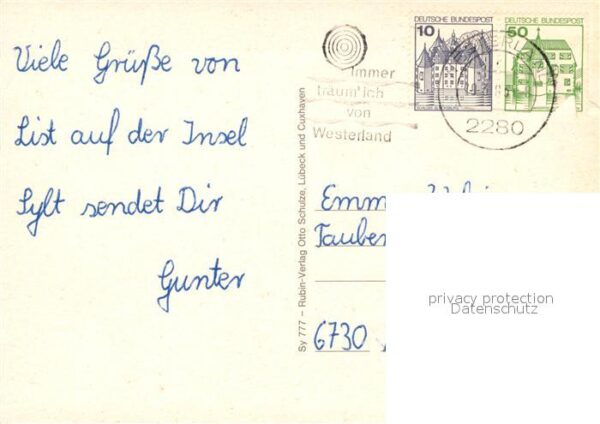 Viele Grüße von
List auf der Insel
Sylt sendet Dir
Gunter
Sy 777 – Rubin-Verlag Otto Schulze, Lübeck und Cuxhaven
immer
träum' ich
von
Westerland
10 DEUTSCHE BUNDESPOST
50 DEUTSCHE BUNDESPOST
2280
6730
privacy protection
Datenschutz